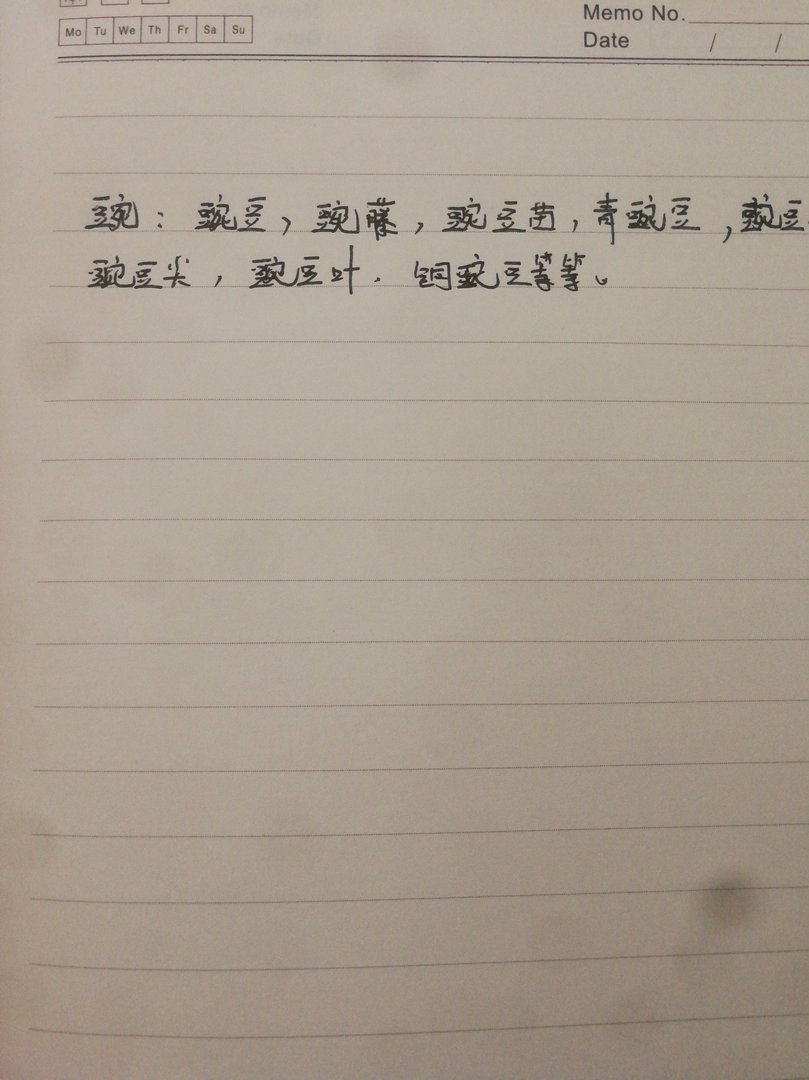 Memo No.
Mo Tu We Th Fr Sa Su
Date / /
豌：豌豆，豌藤，豌豆苗，青豌豆，豌豆
豌豆尖，豌豆叶．铜豌豆等等。